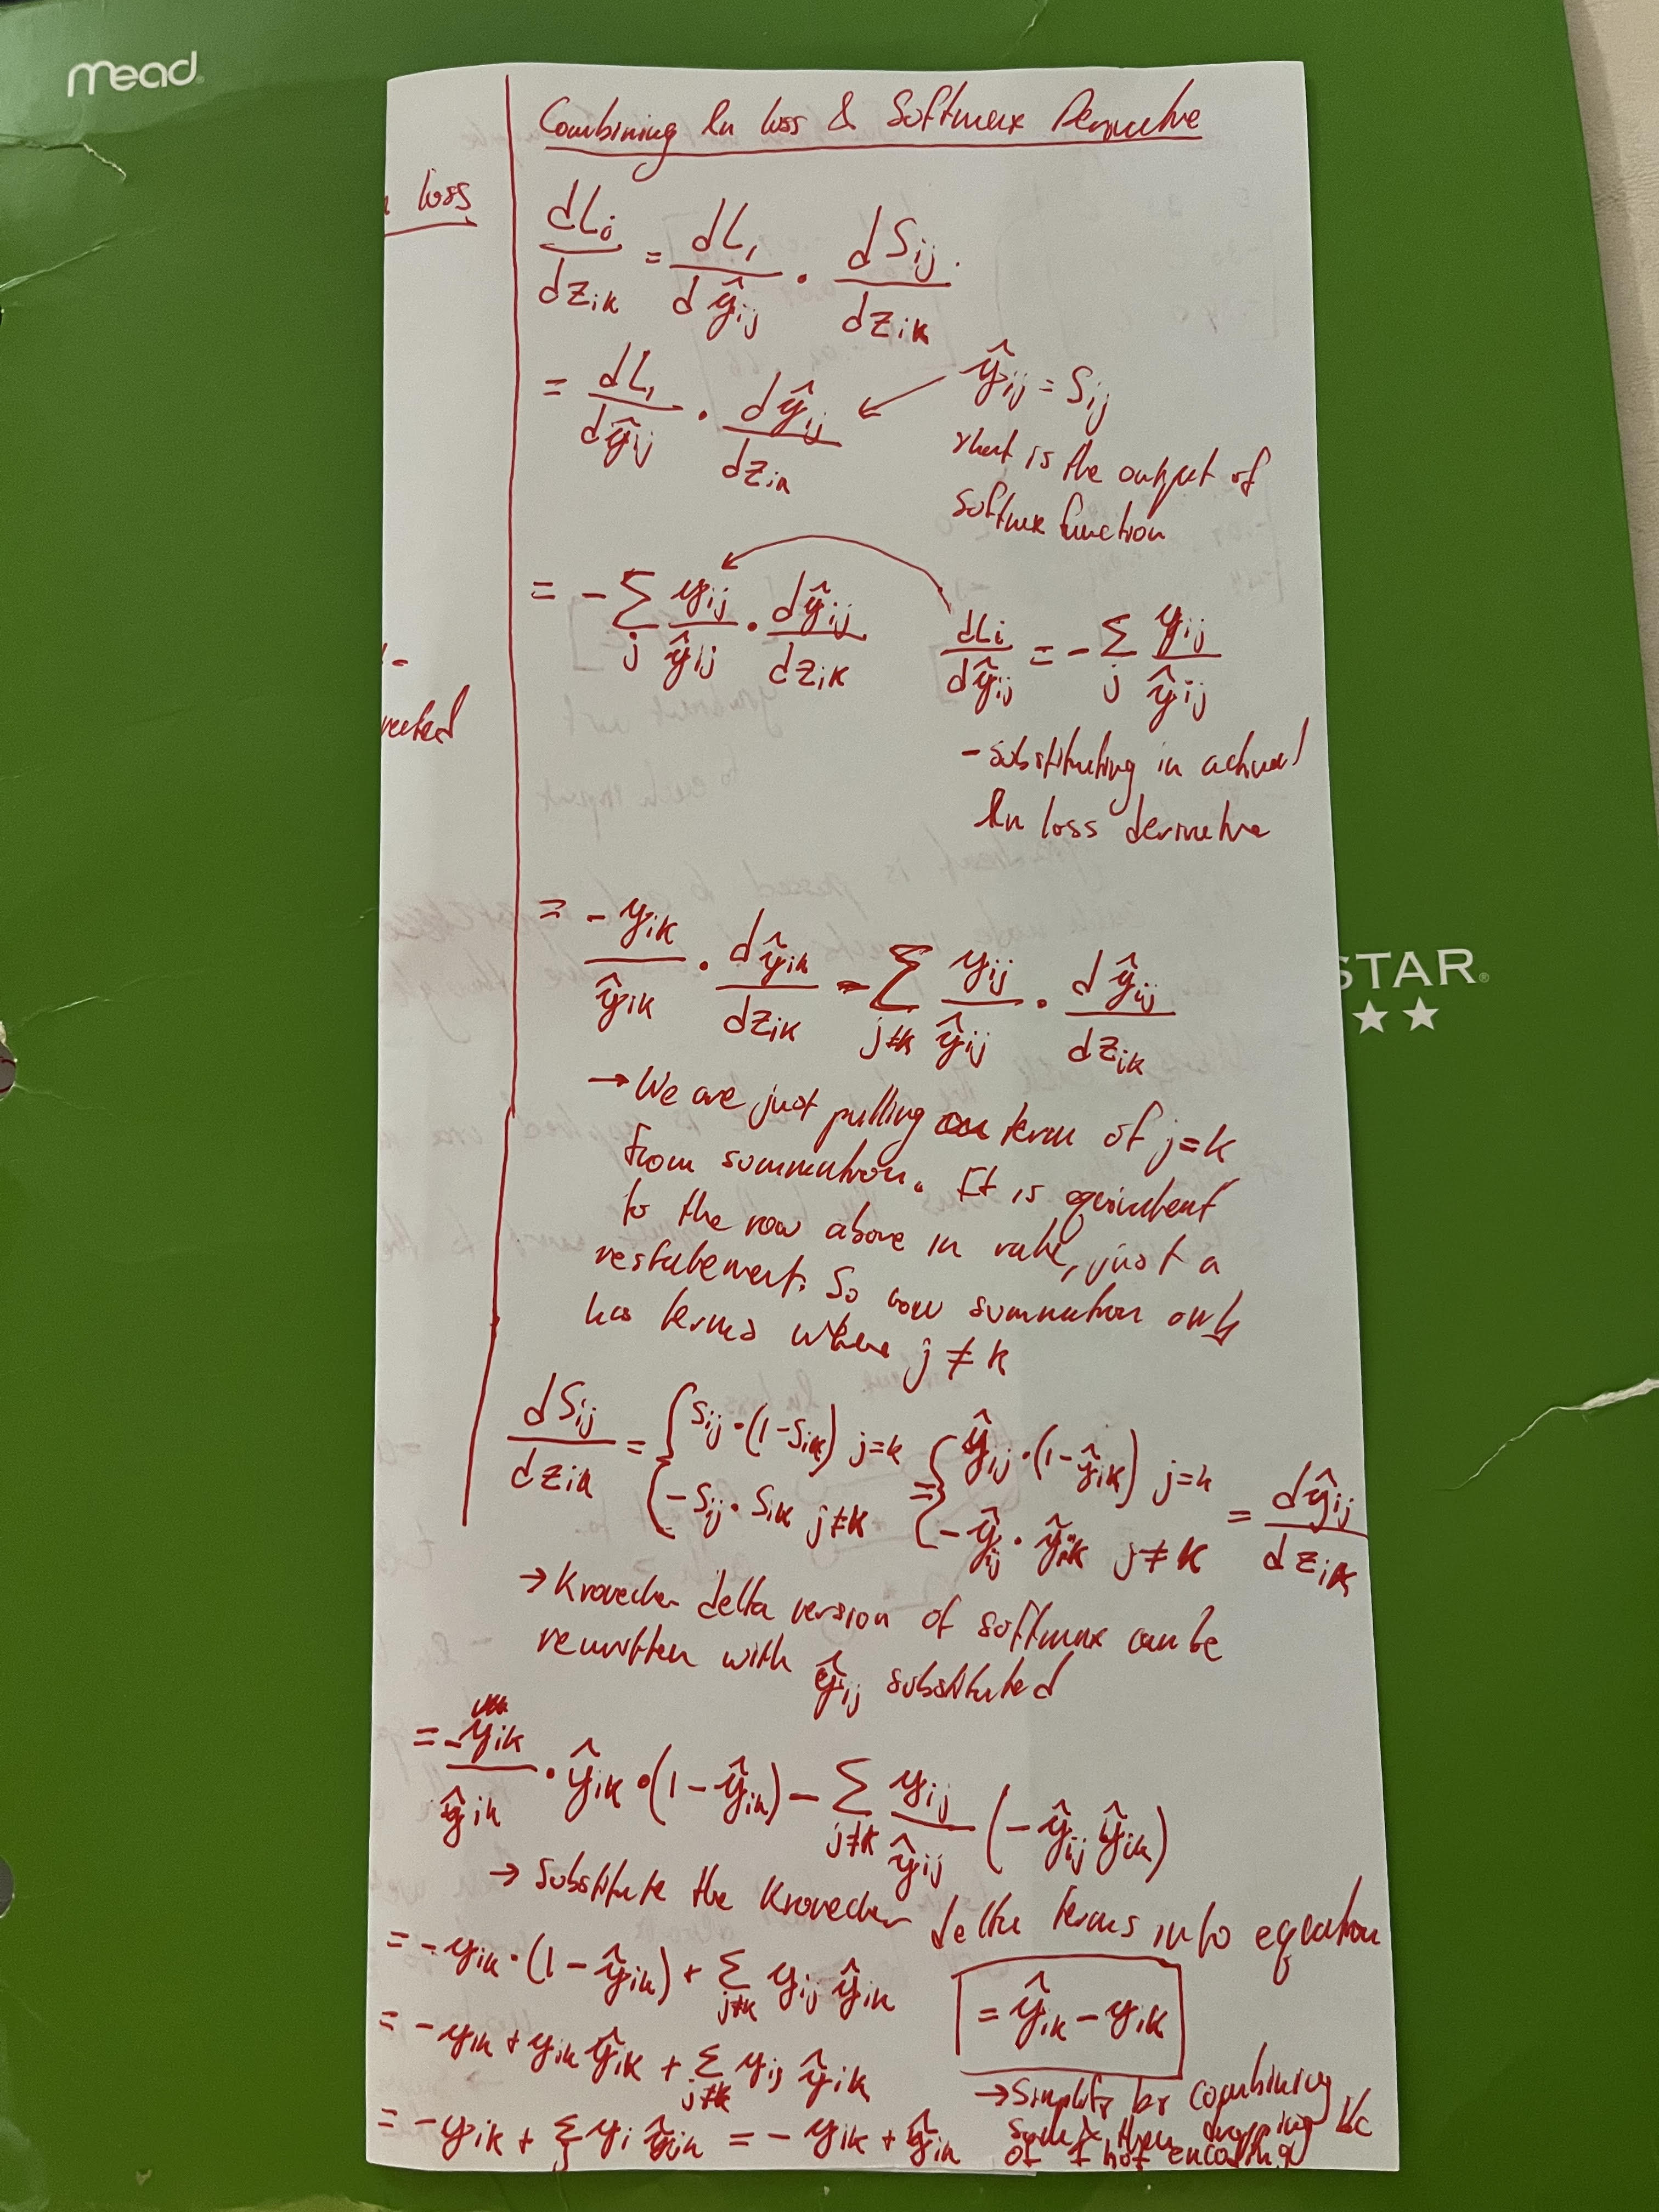 Mead
Combining ln loss & Softmax Derivative
loss
dLi/dz_ik = dL,/dŷ_ij · dS_ij/dz_ik
= dL,/dŷ_ij · dŷ_ij/dz_ik
ŷ_ij = S_ij
that is the output of
softmax function
= -Σ_j y_ij/ŷ_ij · dŷ_ij/dz_ik
dLi/dŷ_ij = -Σ_j y_ij/ŷ_ij
- substituting in actual
ln loss derivative
= -y_ik/ŷ_ik · dŷ_ik/dz_ik - Σ_j≠k y_ij/ŷ_ij · dŷ_ij/dz_ik
STAR
→ We are just pulling term of j=k
from summation. It is equivalent
to the row above in value, just a
restatement. So now summation only
has terms where j ≠ k
dS_ij/dz_ik = { S_ij·(1-S_ik) j=k { -S_ij·S_ik j≠k = { ŷ_ij·(1-ŷ_ik) j=k { -ŷ_ij·ŷ_ik j≠k = dŷ_ij/dz_ik
→ Kronecker delta version of softmax can be
rewritten with ŷ_ij substituted
= -y_ik/ŷ_ik · ŷ_ik·(1-ŷ_ik) - Σ_j≠k y_ij/ŷ_ij (-ŷ_ij ŷ_ik)
→ Substitute the Kronecker delta terms into equation
= -y_ik·(1-ŷ_ik) + Σ_j≠k y_ij ŷ_ik
= -y_ik + y_ik ŷ_ik + Σ_j≠k y_ij ŷ_ik
= -y_ik + Σ_j y_i ŷ_ik = -y_ik + ŷ_ik
= ŷ_ik - y_ik
→ Simplify by combining
then dropping b/c
of 1 hot encoding